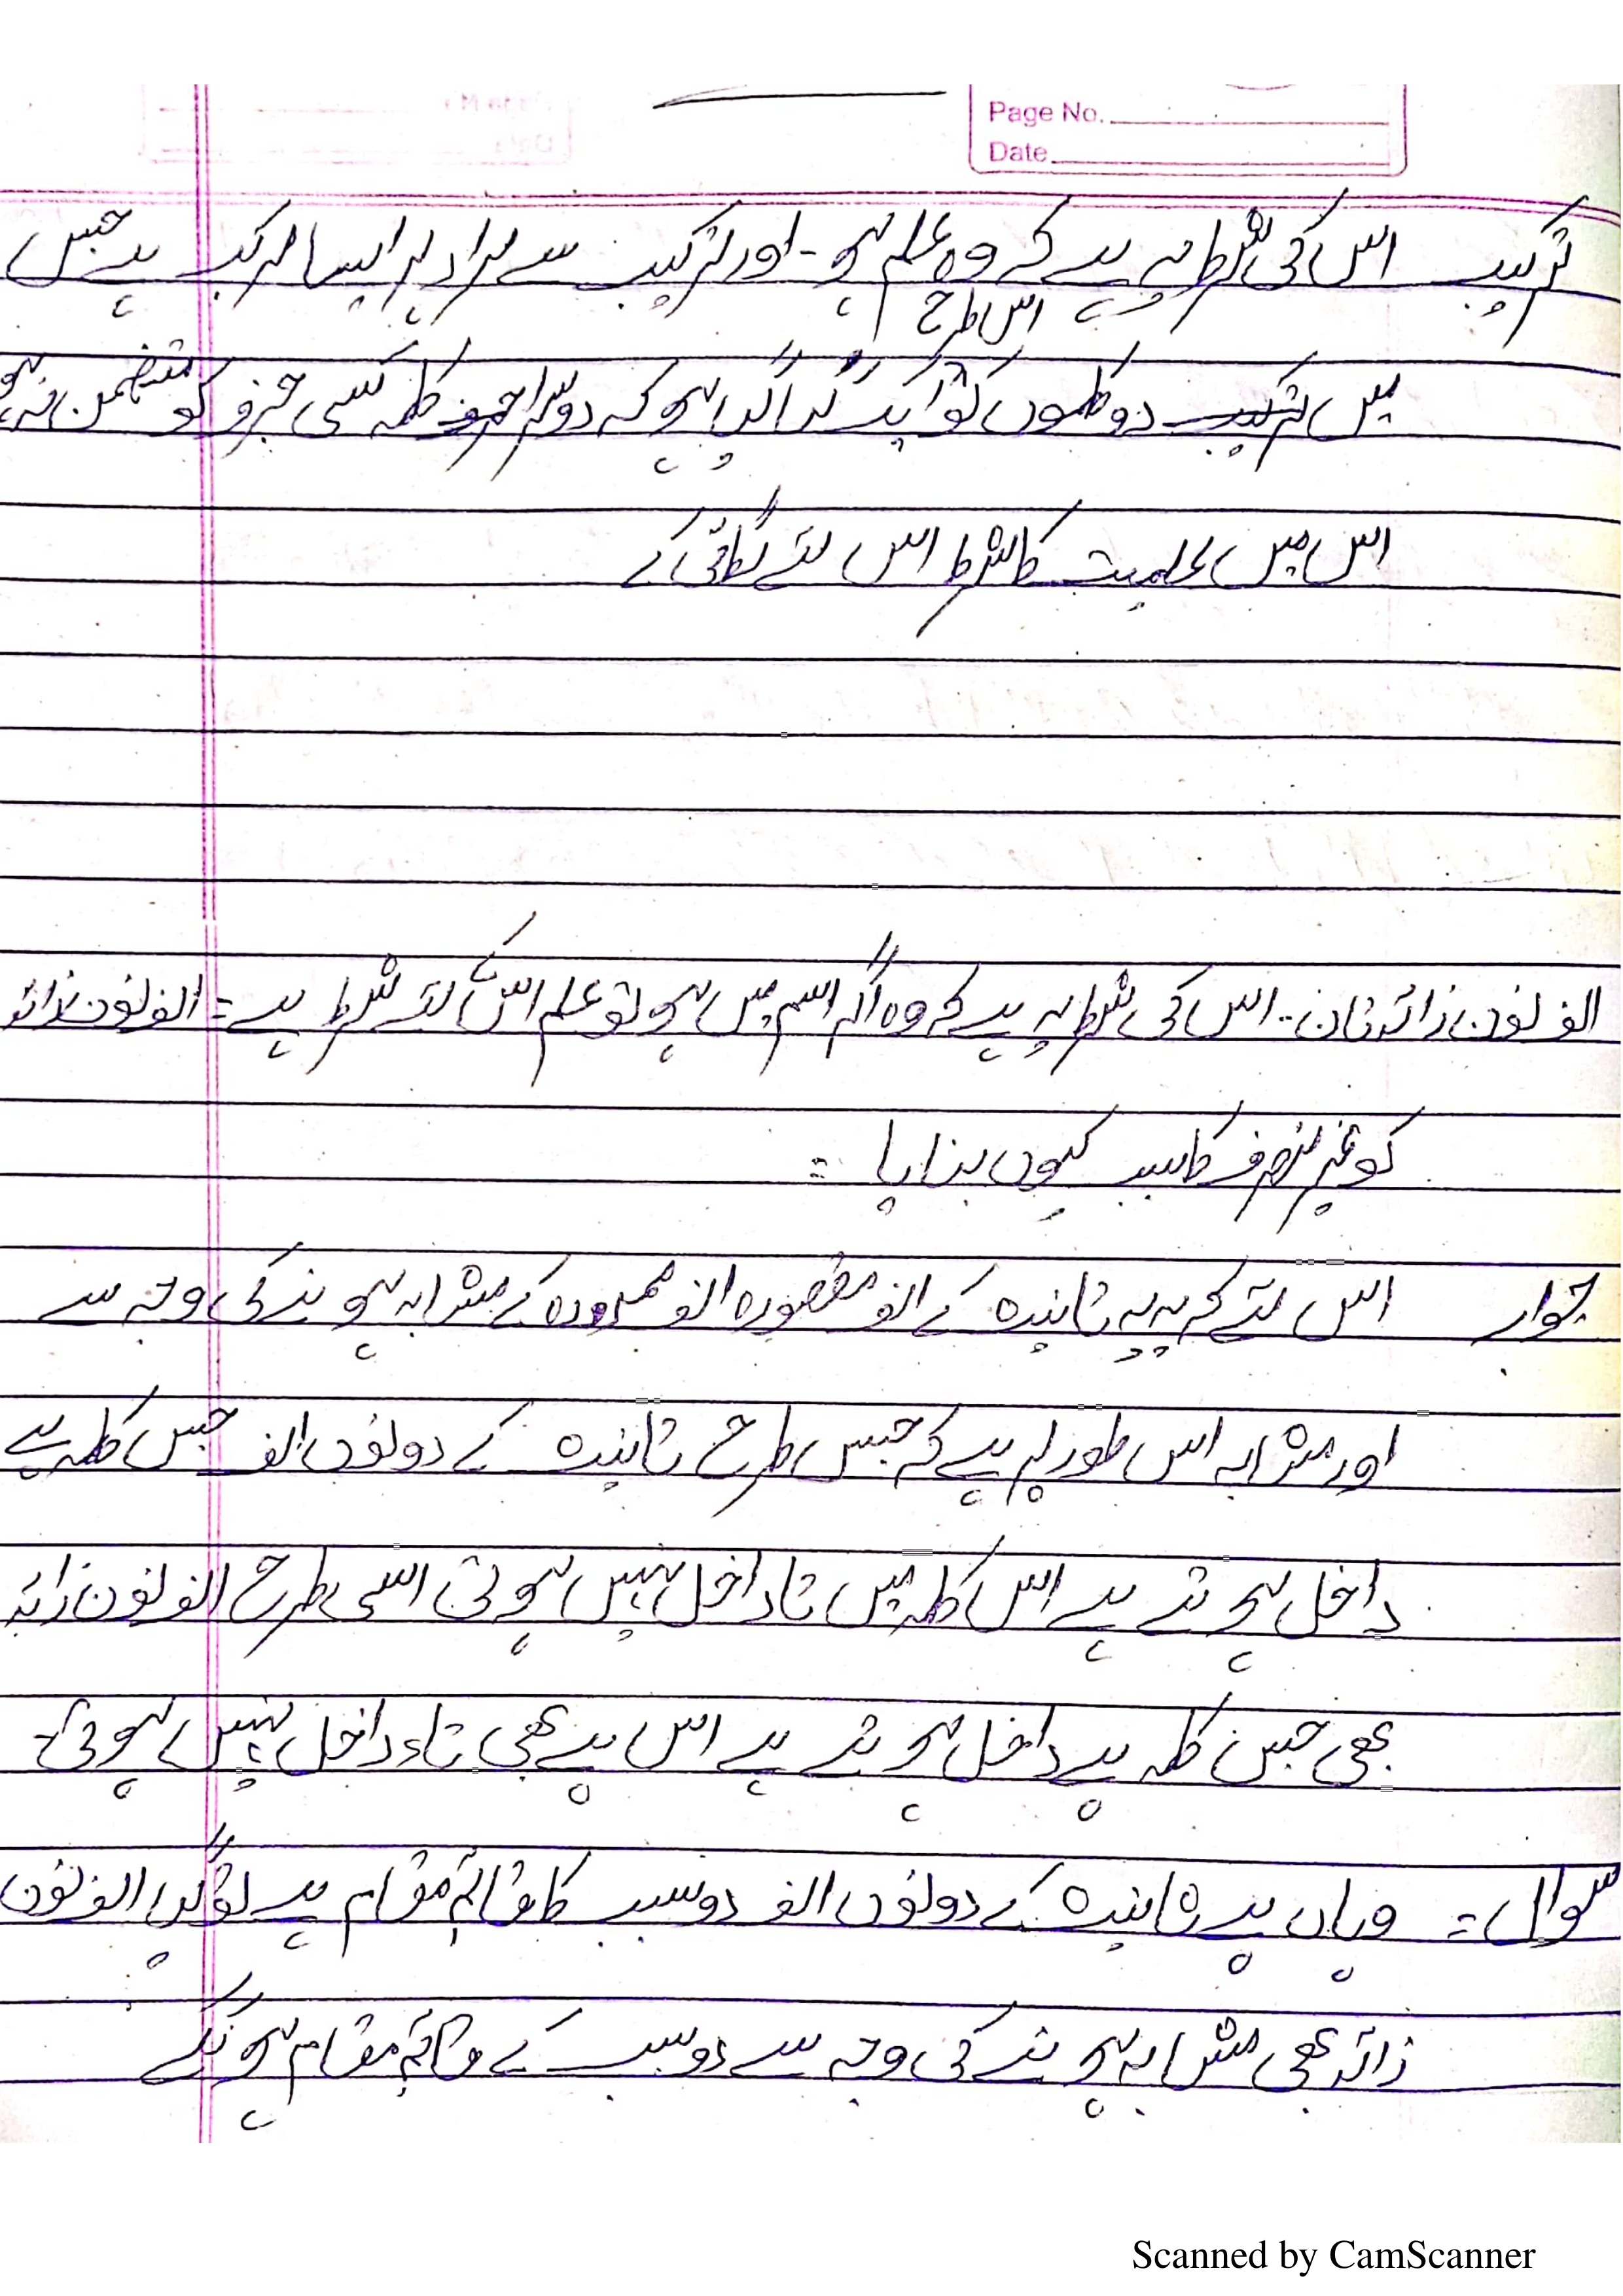 Page No.
Date
ترکیب اس کی شرط یہ ہے کے وہ علم ہو - اور ترکیب سے مراد ہر ایسا مرکب ہے جس
اس طرح
میں ترکیب دو کلموں کو ایک کر دیا گیا ہو کہ دوسرا حرف کلمہ کسی جزو کو متضمن نہ ہو
اس میں علمیت کا شرط اس لئے لگائی کے
الف نون زائدتان - اس کی شرط یہ ہے کے وہ اگر اسم میں ہو تو علم اس کے لئے شرط ہے = الف نون زائد
کو غیر منصرف کا سبب کیوں بنایا =
جواب اس لئے کہ یہ تانیدہ کے الف مقصورہ الف ممدودہ کے مشابہ ہونے کی وجہ سے
اور مشابہ اس طور پر ہے کے جس طرح تانیدہ کے دونوں الف جس کلمہ پے
داخل ہوتے ہے اس کلمہ میں تا داخل نہیں ہوتی اسی طرح الف نون زائد
بھی جس کلمہ پے داخل ہوتے ہے اس پے بھی تاء داخل نہیں ہوتی -
سوال = وہاں پے تانیدہ کے دونوں الف دو سبب کا قائم مقام ہے تو کیا الف نون
زائد بھی مشابہ ہونے کی وجہ سے دو سبب کے قائم مقام ہونگے
Scanned by CamScanner